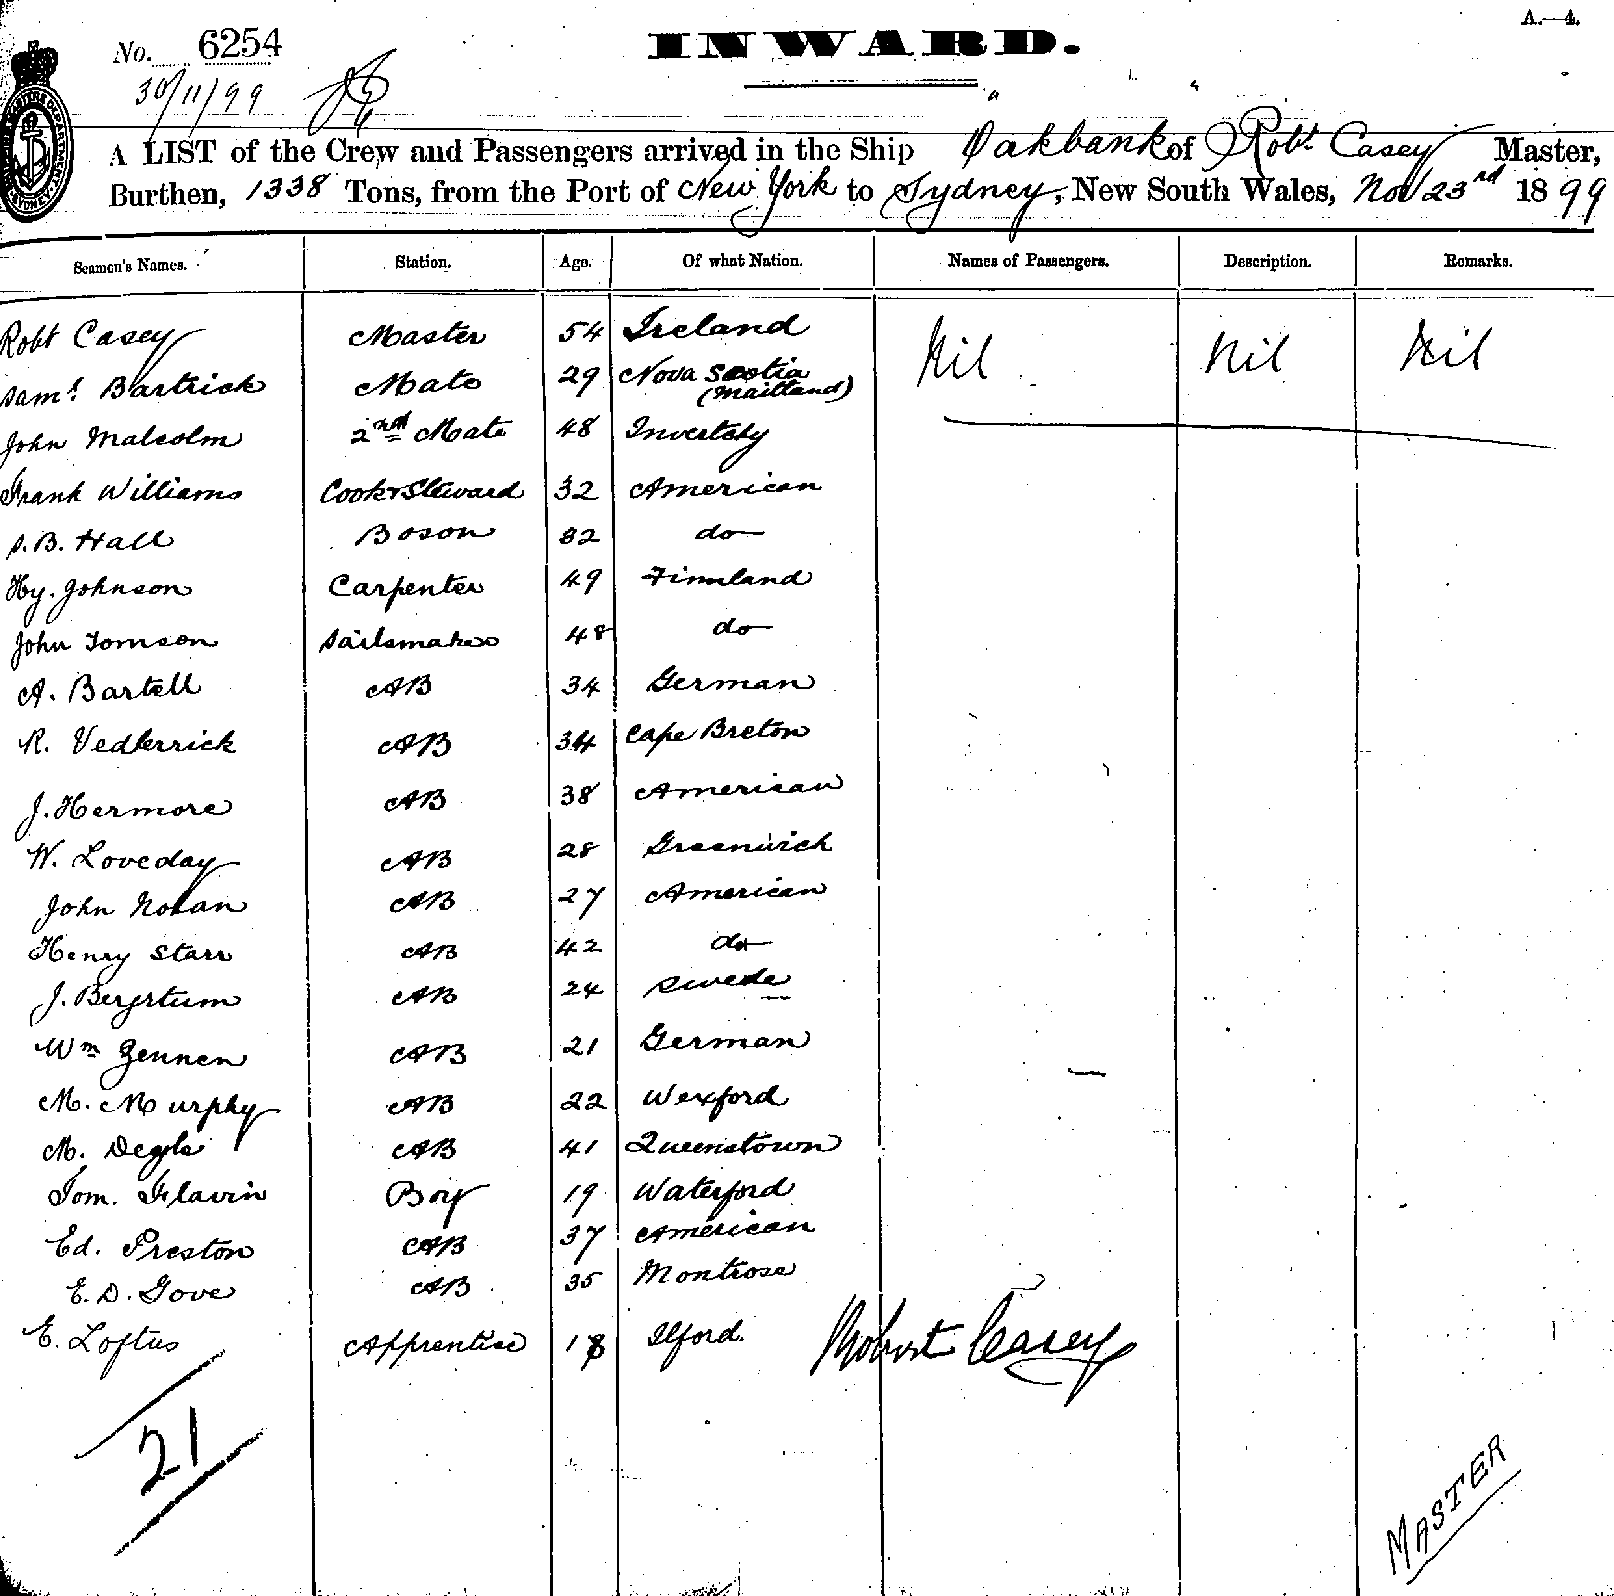 A.—4.
No. 6254
INWARD.
30/11/99
A LIST of the Crew and Passengers arrived in the Ship Oakbank of Robt. Casey Master,
Burthen, 1338 Tons, from the Port of New York to Sydney, New South Wales, Nov 23rd 1899
Seamen's Names. Station. Age. Of what Nation. Names of Passengers. Description. Remarks.
Robt Casey Master 54 Ireland Nil Nil Nil
Saml. Bartrick Mate 29 Nova Scotia
(Maitland)
John Malcolm 2nd Mate 48
Frank Williams Cook & Steward 32 American
S. B. Hall Boson 32 do
Hy. Johnson Carpenter 49 Finnland
John Tomson Sailsmaker 48 do
A. Bartell AB 34 German
R. Vedterrick AB 34 Cape Breton
J. Hermore AB 38 American
W. Loveday AB 28 Greenwich
John Nolan AB 27 American
Henry Starr AB 42 do
J. Bergstum AB 24 Swede
Wm Zennen AB 21 German
M. Murphy AB 22 Wexford
M. AB 41 Queenstown
Tom. Flavin Boy 19 Waterford
Ed. Preston AB 37 American
E. D. Gove AB 35 Montrose
E. Loftus Apprentice 18 Ilford.
Robert Casey
21
MASTER